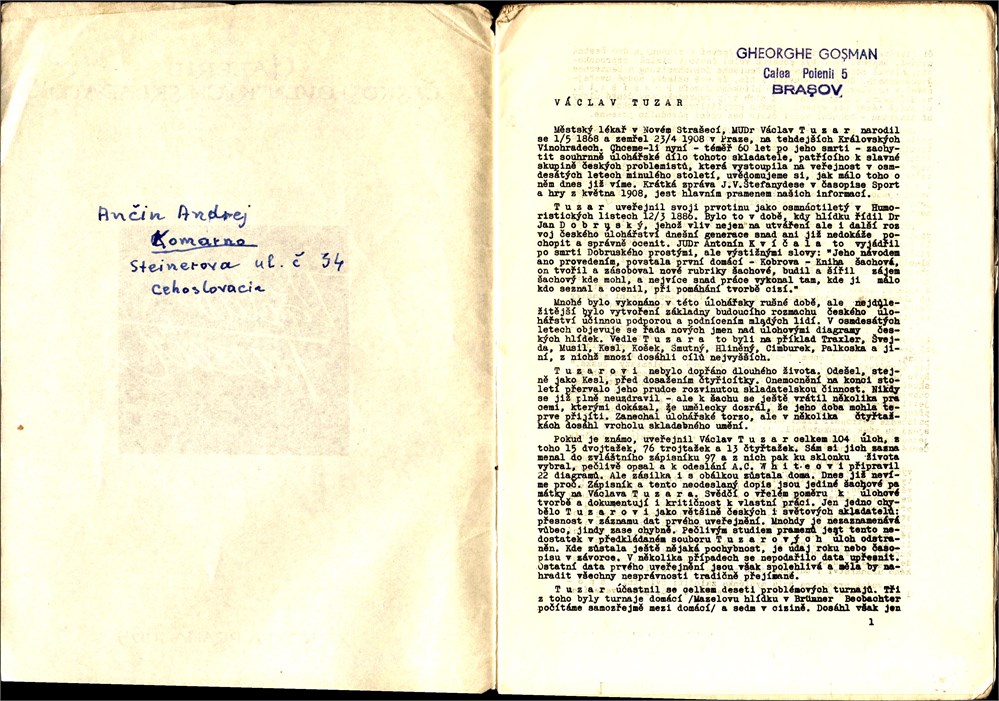 Ančin Andrej
Komarno
Steinerova ul. č 34
Cehoslovacia
GHEORGHE GOȘMAN
Calea Poienii 5
BRAȘOV
VÁCLAV TUZAR
Městský lékař v Novém Strašecí, MUDr Václav T u z a r narodil
se 1/5 1868 a zemřel 23/4 1908 v Praze, na tehdejších Královských
Vinohradech. Chceme-li nyní - téměř 60 let po jeho smrti - zachy-
tit souhrnně úlohářské dílo tohoto skladatele, patřícího k slavné
skupině českých problemistů, která vystoupila na veřejnost v osm-
desátých letech minulého století, uvědomujeme si, jak málo toho o
něm dnes již víme. Krátká zpráva J.V.Štefanydese v časopise Sport
a hry z května 1908, jest hlavním pramenem našich informací.
T u z a r uveřejnil svoji prvotinu jako osmnáctiletý v Humo-
ristických listech 12/3 1886. Bylo to v době, kdy hlídku řídil Dr
Jan D o b r u s k ý, jehož vliv nejen na utváření ale i další roz
voj českého úlohářství dnešní generace snad ani již nedokáže po-
chopit a správně ocenit. JUDr Antonín K v í č a l a to vyjádřil
po smrti Dobruského prostými, ale výstižnými slovy: "Jeho návodem
ano provedením, povstala první domácí - Kobrova - Kniha šachová,
on tvořil a zásoboval nově rubriky šachové, budil a šířil zájem
šachový kde mohl, a nejvíce snad práce vykonal tam, kde ji málo
kdo seznal a ocenil, při pomáhání tvorbě cizí."
Mnohé bylo vykonáno v této úlohářsky rušné době, ale nejdůle-
žitější bylo vytvoření základny budoucího rozmachu českého úlo-
hářství účinnou podporou a podnícením mladých lidí. V osmdesátých
letech objevuje se řada nových jmen nad úlohovými diagramy čes-
kých hlídek. Vedle T u z a r a to byli na příklad Traxler, Švej-
da, Musil, Kesl, Košek, Smutný, Hliněný, Cimburek, Palkoska a ji-
ní, z nichž mnozí dosáhli cílů nejvyšších.
T u z a r o v i nebylo dopřáno dlouhého života. Odešel, stej-
ně jako Kesl, před dosažením čtyřicítky. Onemocnění na konci sto-
letí přervalo jeho prudce rozvinutou skladatelskou činnost. Nikdy
se již plně neuzdravil - ale k šachu se ještě vrátil několika pra
cemi, kterými dokázal, že umělecky dozrál, že jeho doba mohla te-
prve přijíti. Zanechal úlohářské torzo, ale v několika čtyřtaž-
kách dosáhl vrcholu skladebného umění.
Pokud je známo, uveřejnil Václav T u z a r celkem 104 úloh, z
toho 15 dvojtažek, 76 trojtažek a 13 čtyřtažek. Sám si jich zazna
menal do zvláštního zápisníku 97 a z nich pak ku sklonku života
vybral, pečlivě opsal a k odeslání A.C. W h i t e o v i připravil
22 diagramů. Ale zásilka i s obálkou zůstala doma. Dnes již neví-
me proč. Zápisník a tento neodeslaný dopis jsou jediné šachové pa
mátky na Václava T u z a r a. Svědčí o vřelém poměru k úlohové
tvorbě a dokumentují i kritičnost k vlastní práci. Jen jedno chy-
bělo T u z a r o v i jako většině českých i světových skladatelů:
přesnost v záznamu dat prvého uveřejnění. Mnohdy je nezaznamenává
vůbec, jindy zase chybně. Pečlivým studiem pramenů jest tento ne-
dostatek v předkládaném souboru T u z a r o v ý c h úloh odstra-
něn. Kde zůstala ještě nějaká pochybnost, je údaj roku nebo časo-
pisu v závorce. V několika případech se nepodařilo data upřesnit.
Ostatní data prvého uveřejnění jsou však spolehlivá a měla by na-
hradit všechny nesprávnosti tradičně přejímané.
T u z a r účastnil se celkem deseti problémových turnajů. Tři
z toho byly turnaje domácí /Mazelovu hlídku v Brünner Beobachter
počítáme samozřejmě mezi domácí/ a sedm v cizině. Dosáhl však jen
1